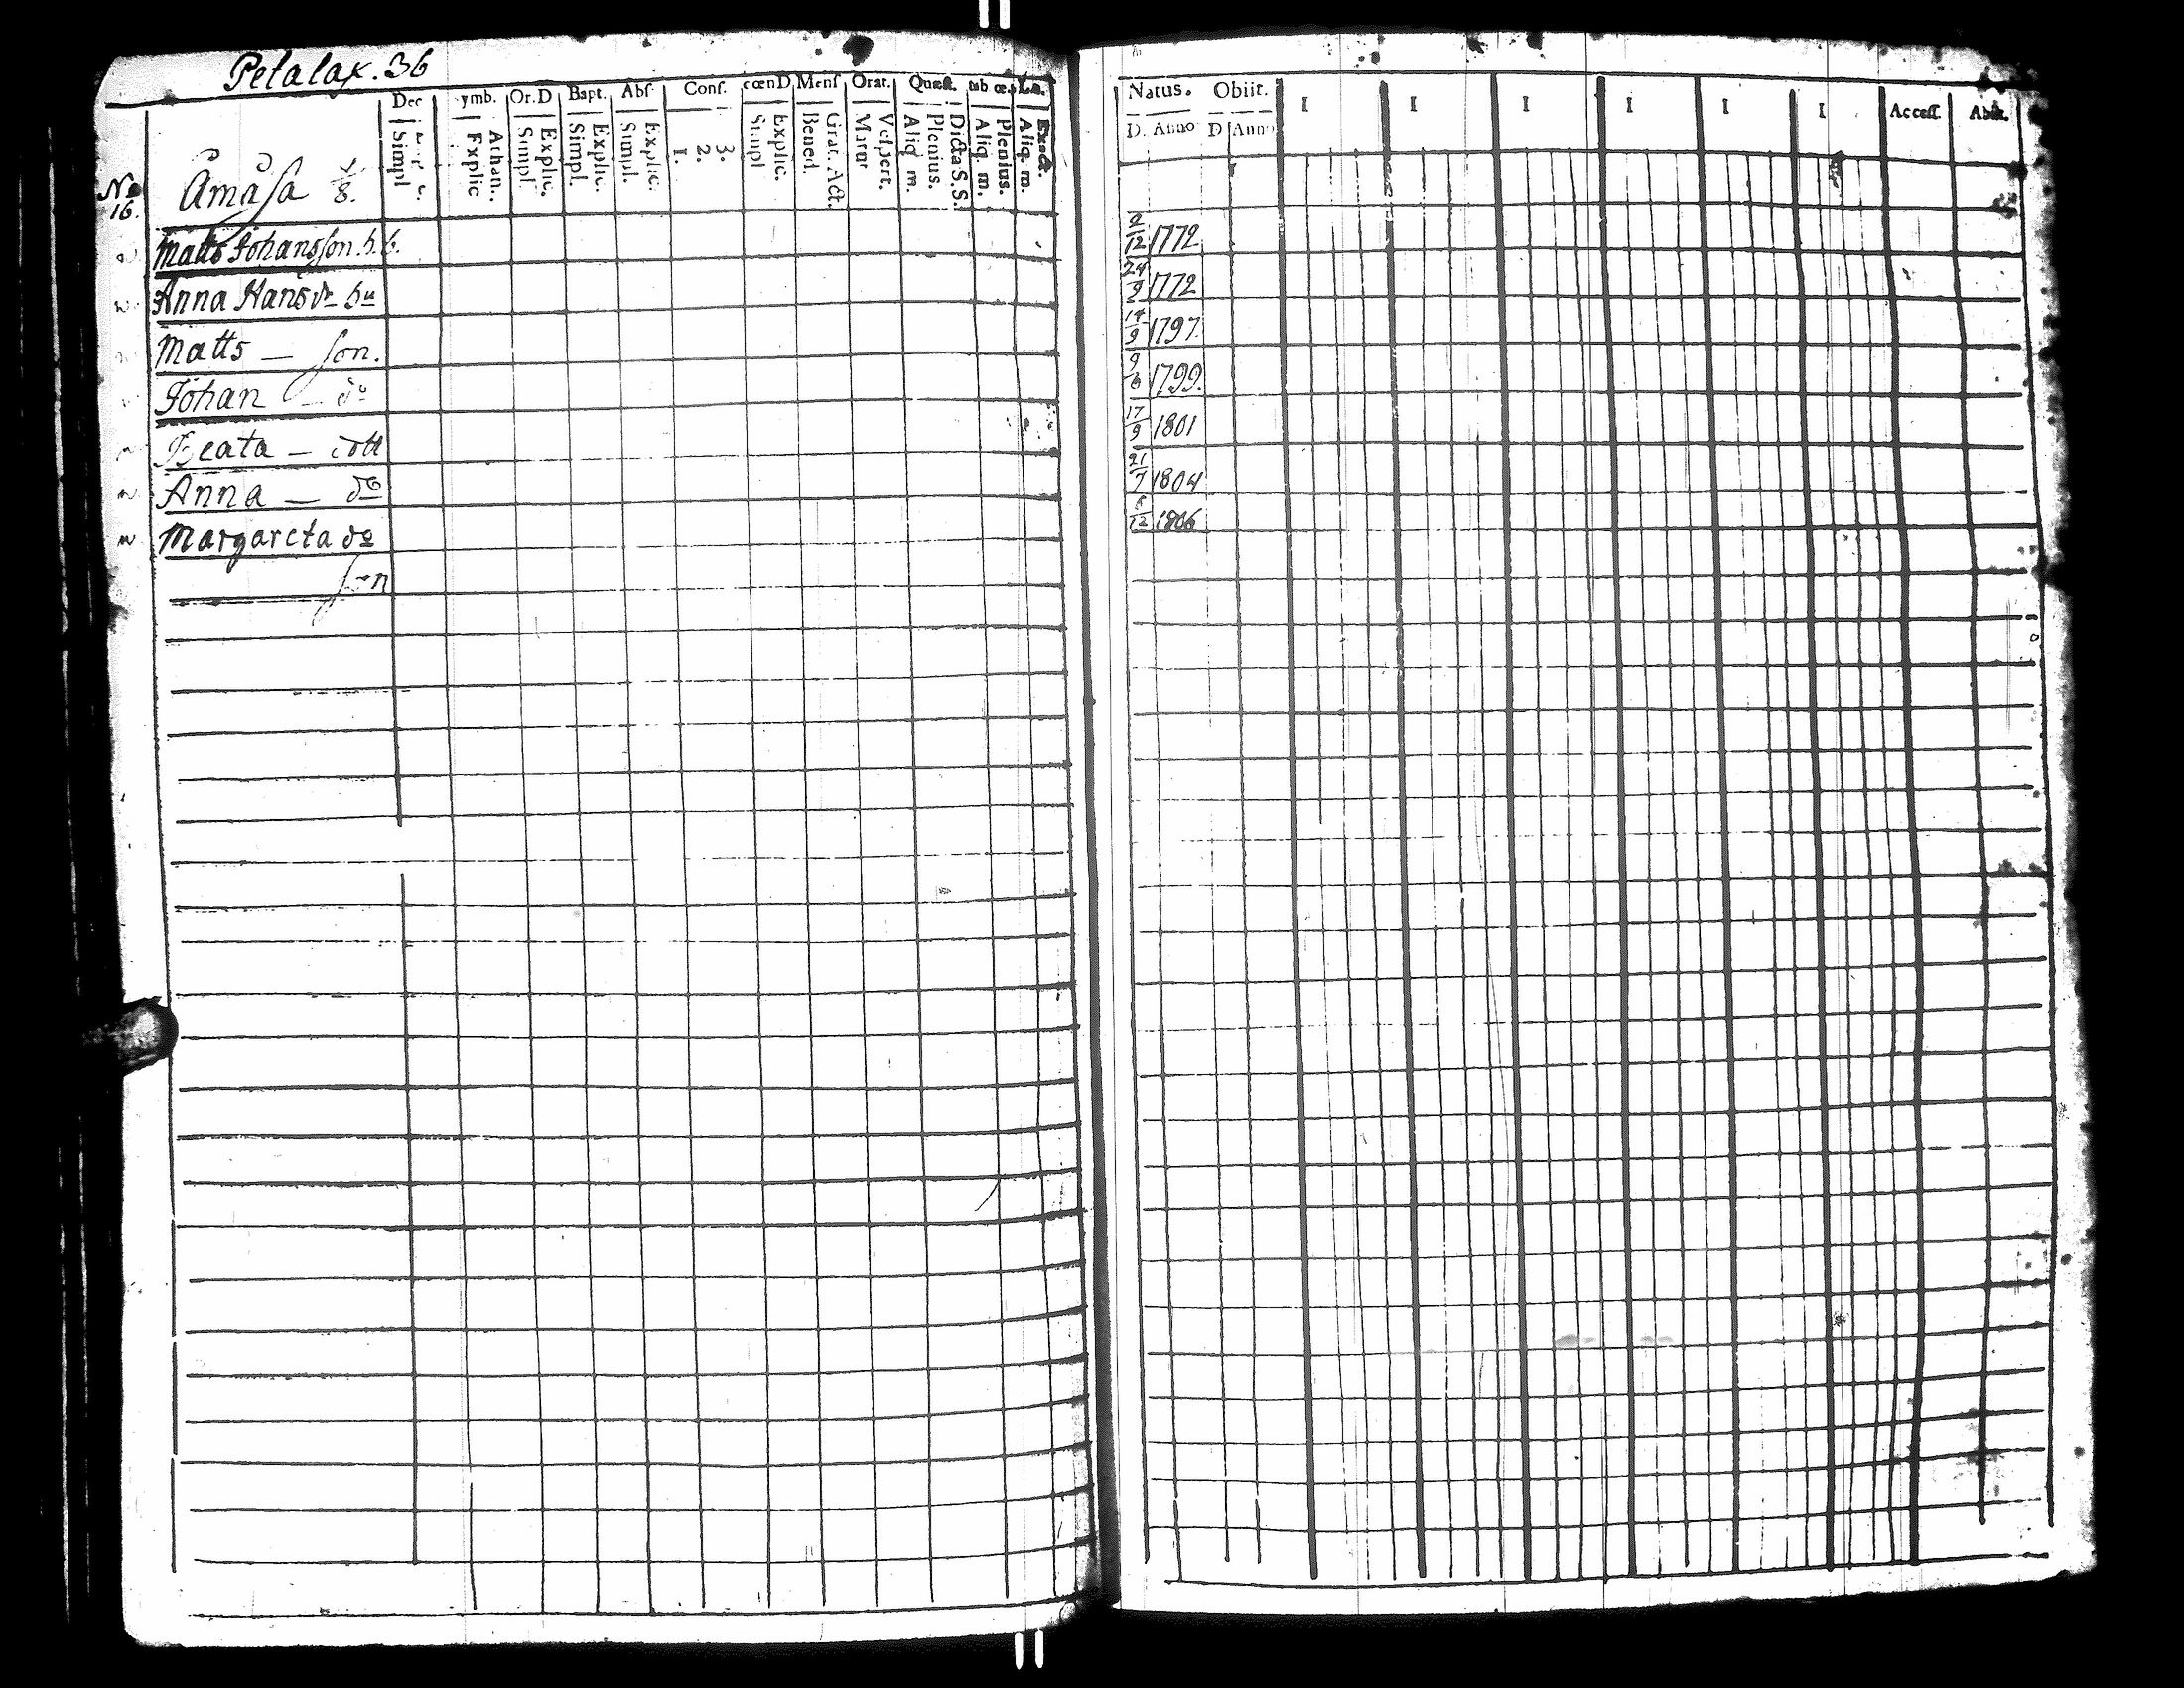 Petalax. 36
Dec ymb. Or.D Bapt. Abs. Conf. cœnD Mens Orat. Quæst. tab œ.
Simpl Explic Athan. Simpl. Explic. Simpl. Explic. Simpl. Explic. 1. 2. 3. Simpl Explic. Bened. Grat. Act. Matut Vespert. Aliq m. Plenius. Dicta S.S. Aliq. m. Plenius. Aliq. m.
No 16. Amåsa 1/8.
Matts Johansson. h.b.
Anna Hansdr hu
Matts — son.
Johan — do
Beata — dott
Anna — do
Margareta do
son
Natus. Obiit. I I I I I I Access. Abiit.
D. Anno D Anno
2/12 1772
24/9 1772
14/9 1797.
9/6 1799.
17/9 1801
21/7 1804
/12 1806